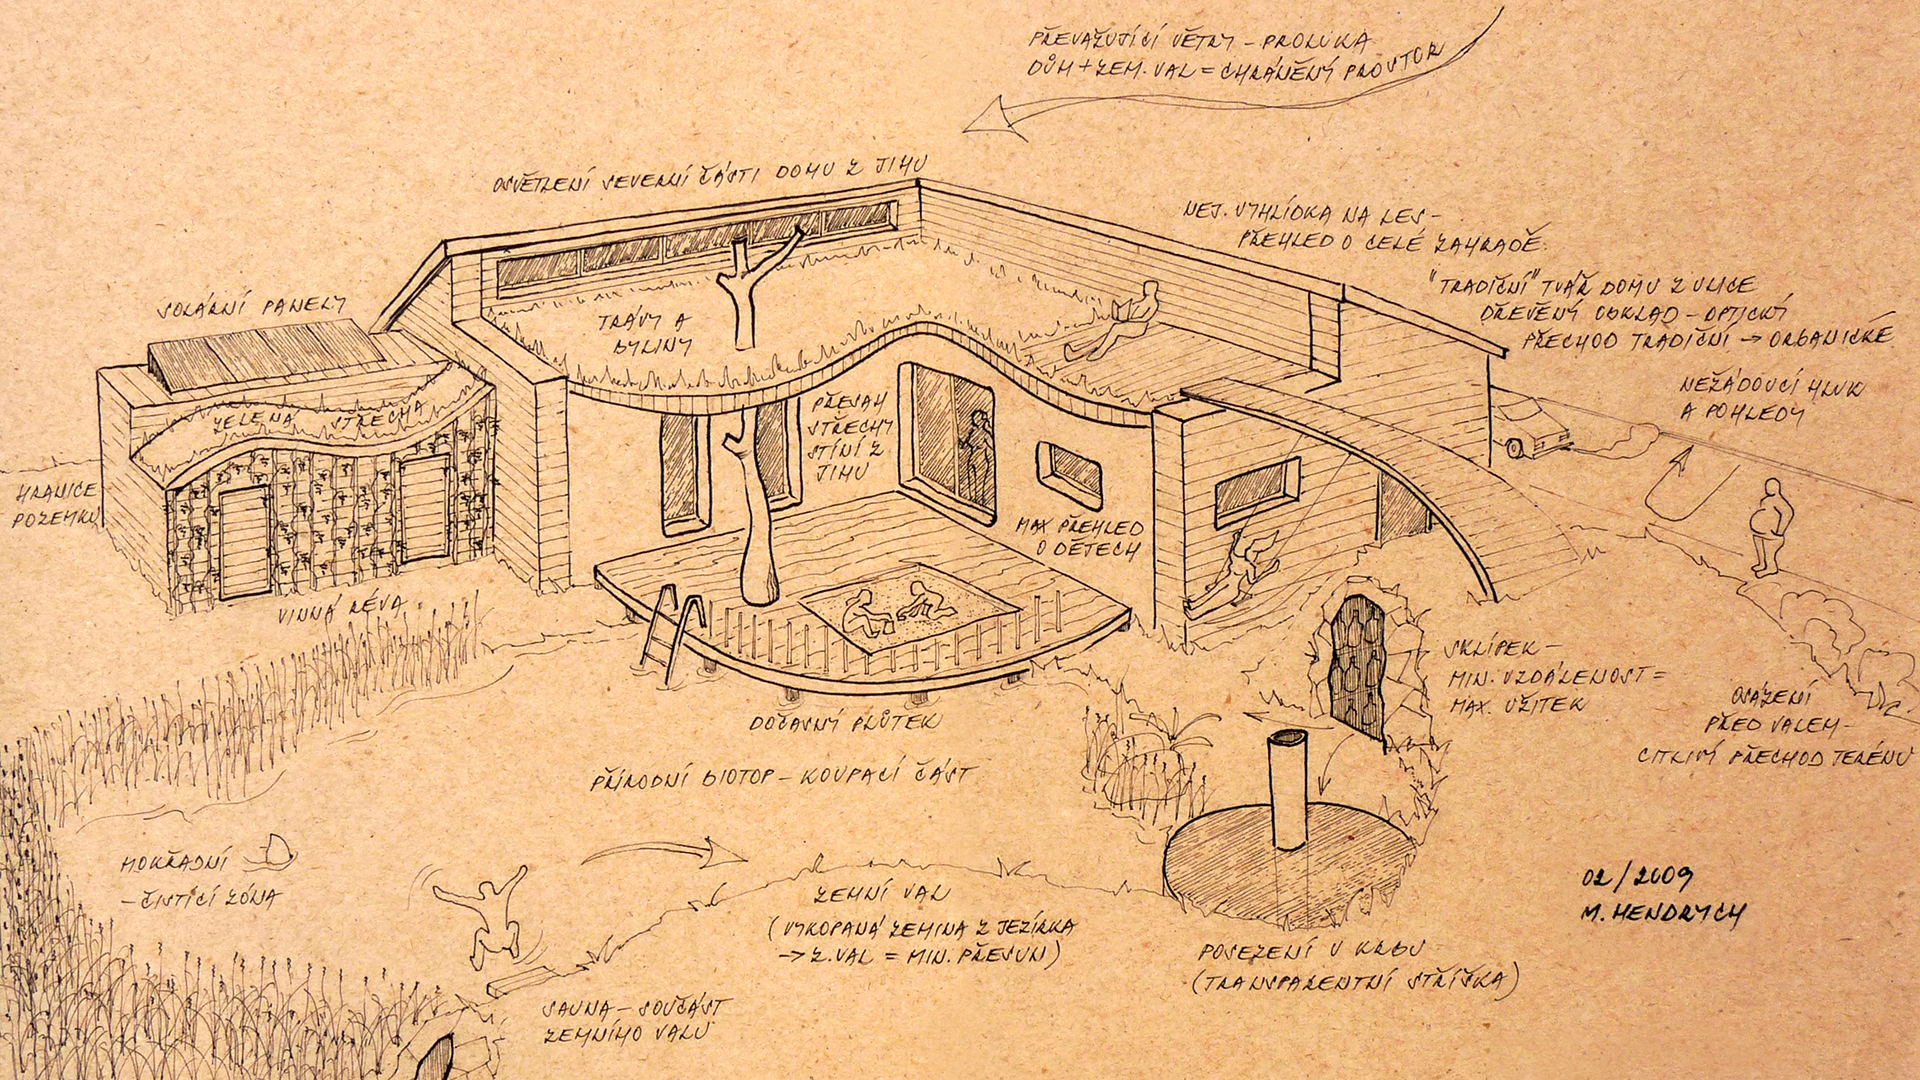 PŘEVAŽUJÍCÍ VĚTRY – PROLUKA
DŮM + ZEM. VAL = CHRÁNĚNÝ PROSTOR
OSVĚTLENÍ SEVERNÍ ČÁSTI DOMU Z JIHU
NEJ. VYHLÍDKA NA LES –
PŘEHLED O CELÉ ZAHRADĚ.
"TRADIČNÍ" TVÁŘ DOMU Z ULICE
DŘEVĚNÝ OBKLAD – OPTICKÝ
PŘECHOD TRADIČNÍ → ORGANICKÉ
NEŽÁDOUCÍ HLUK
A POHLEDY
SOLÁRNÍ PANELY
TRÁVY A
BYLINY
ZELENÁ STŘECHA
PŘESAH
STŘECHY
STÍNÍ Z
JIHU
HRANICE
POZEMKU
MAX PŘEHLED
O DĚTECH
VINNÁ RÉVA
SKLÍPEK –
MIN. VZDÁLENOST =
MAX. UŽITEK
OSÁZENÍ
PŘED VALEM –
CITLIVÝ PŘECHOD TERÉNU
DOČASNÝ PLŮTEK
PŘÍRODNÍ BIOTOP – KOUPACÍ ČÁST
MOKŘADNÍ
– ČISTÍCÍ ZÓNA
ZEMNÍ VAL
(VYKOPANÁ ZEMINA Z JEZÍRKA
→ Z. VAL = MIN. PŘESUN)
POSEZENÍ U KRBU
(TRANSPARENTNÍ STŘÍŠKA)
SAUNA – SOUČÁST
ZEMNÍHO VALU
02/2009
M. HENDRYCH